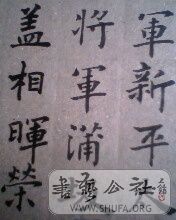 軍新平
將軍蒲
盖相暉榮
書藝公社
WWW.SHUFA.ORG